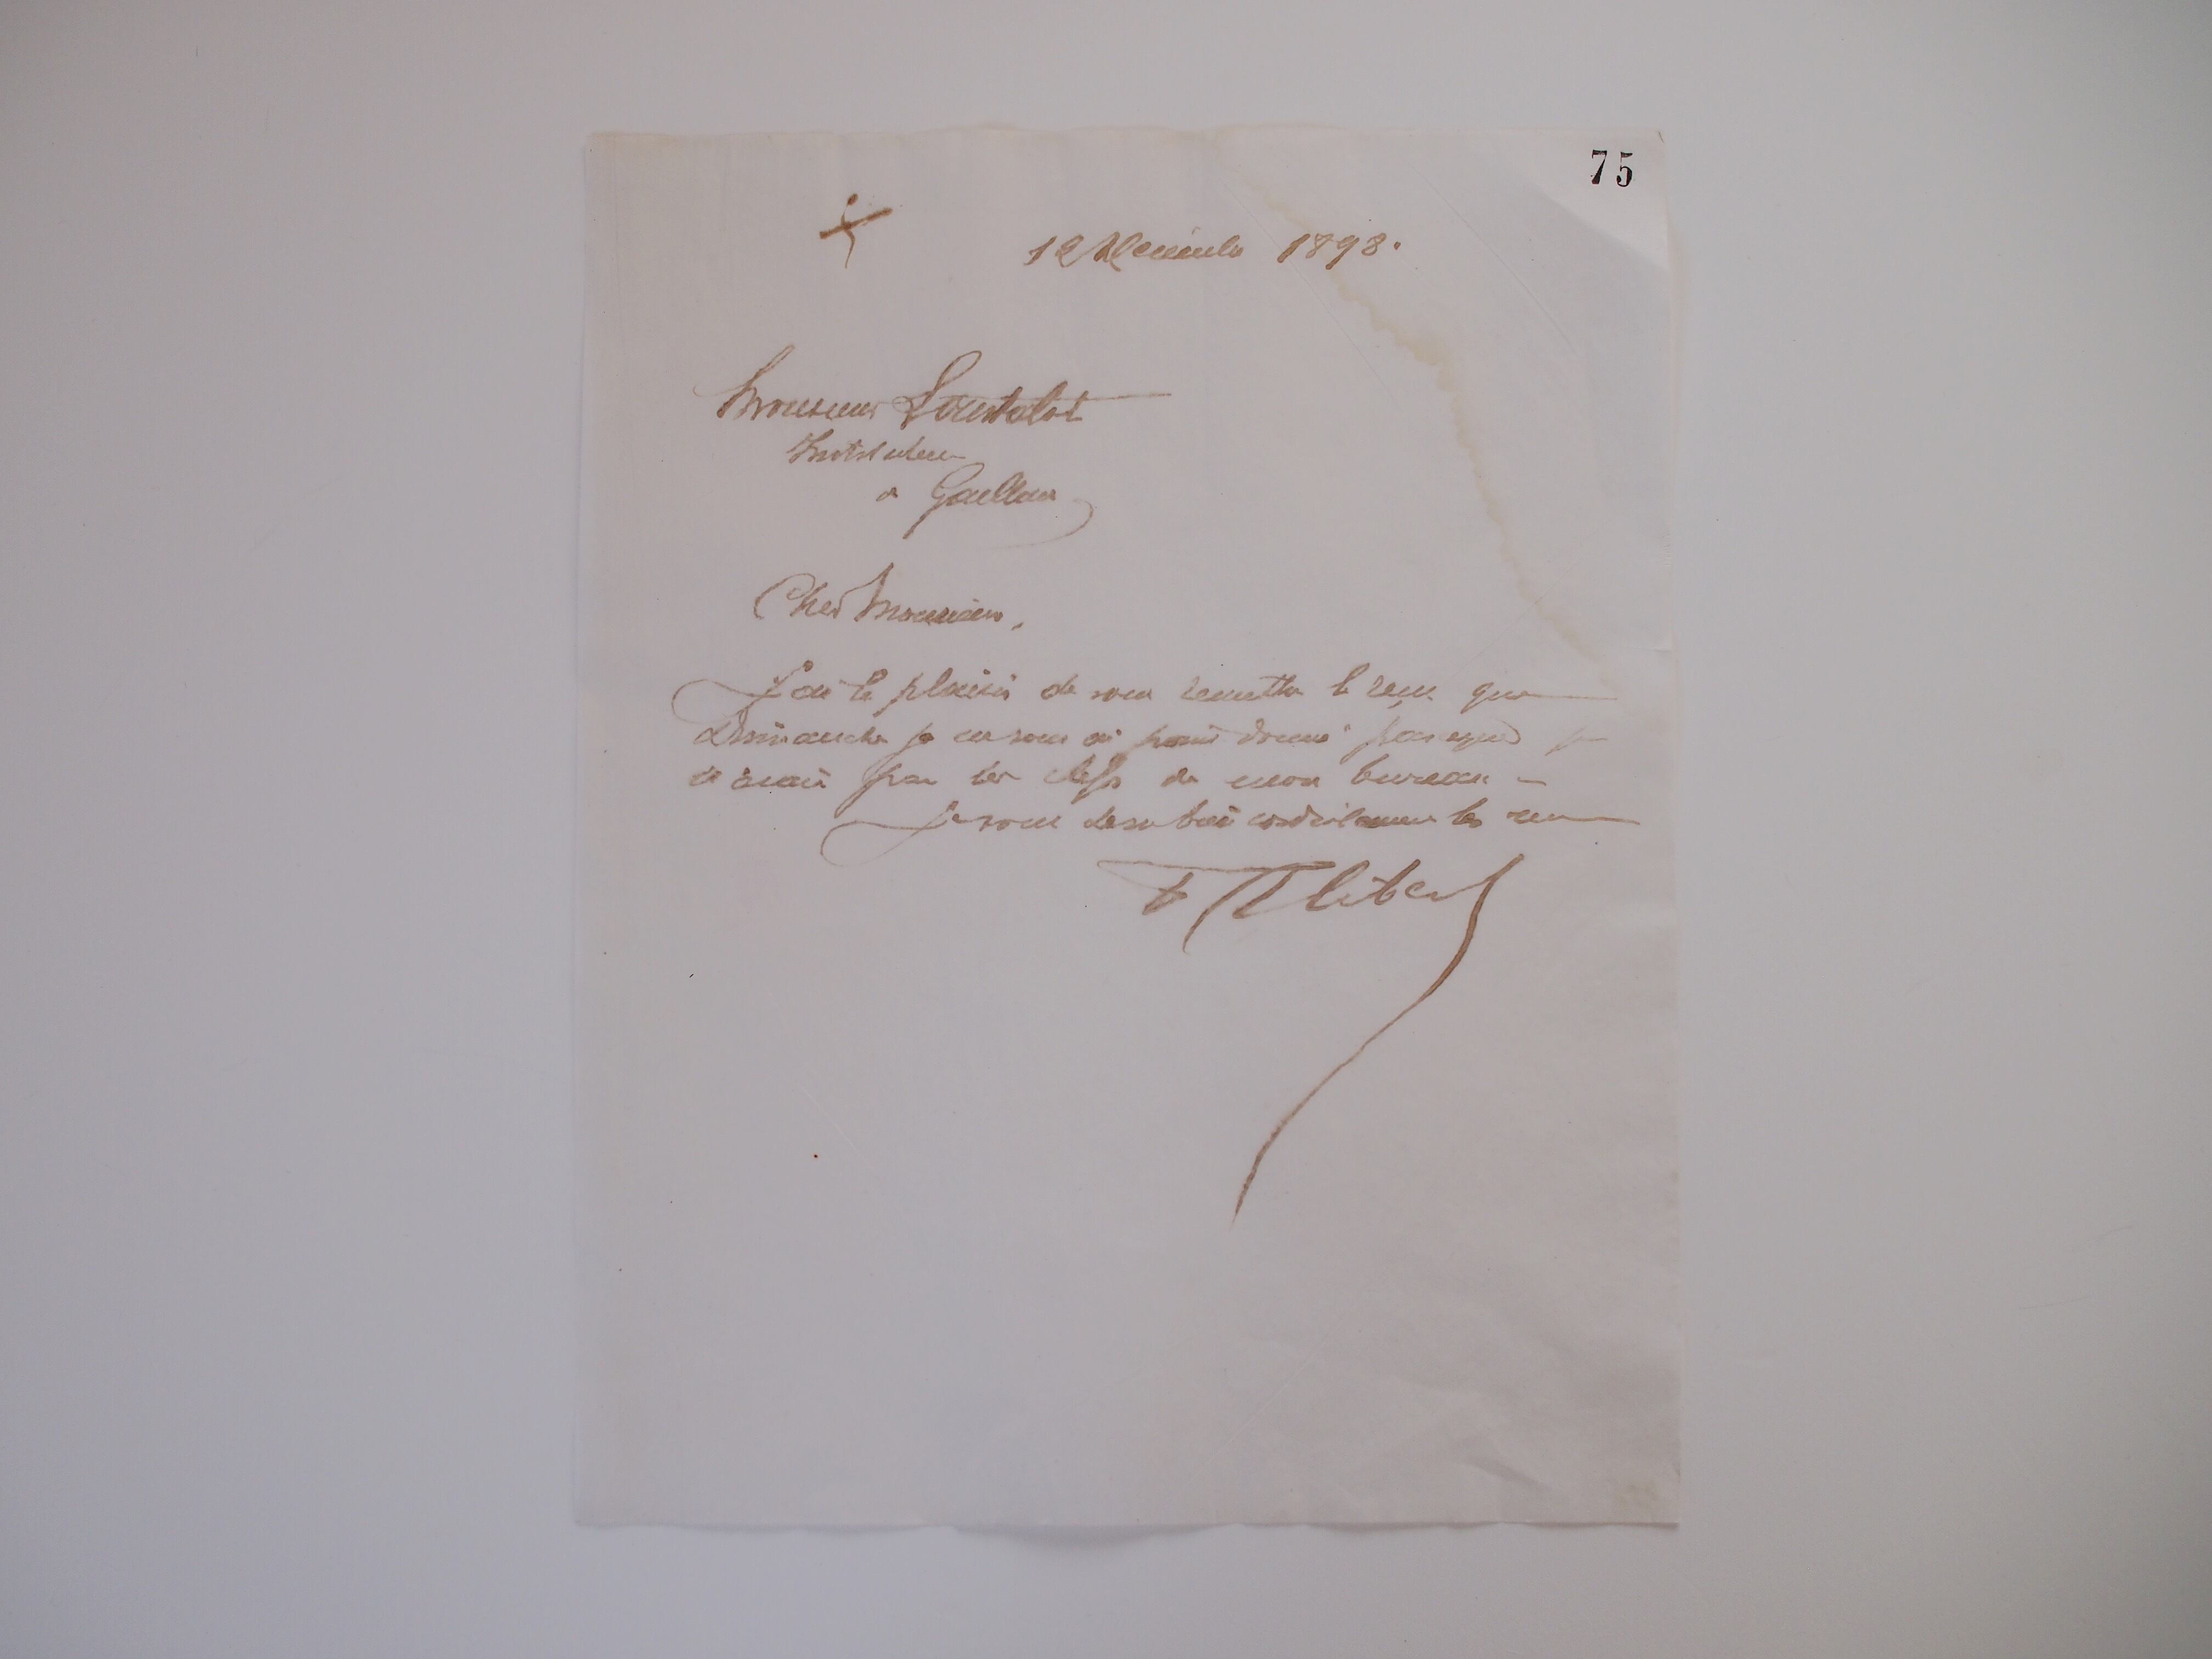 75
12 Décembre 1898.
Monsieur Loustalot
Instituteur
à Gaillan
Cher Monsieur,
J'ai le plaisir de vous remettre le reçu que
Dimanche je ne vous ai point donné parceque je
n'avais pas les clefs de mon bureau -
Je vous serre bien cordialement les mains